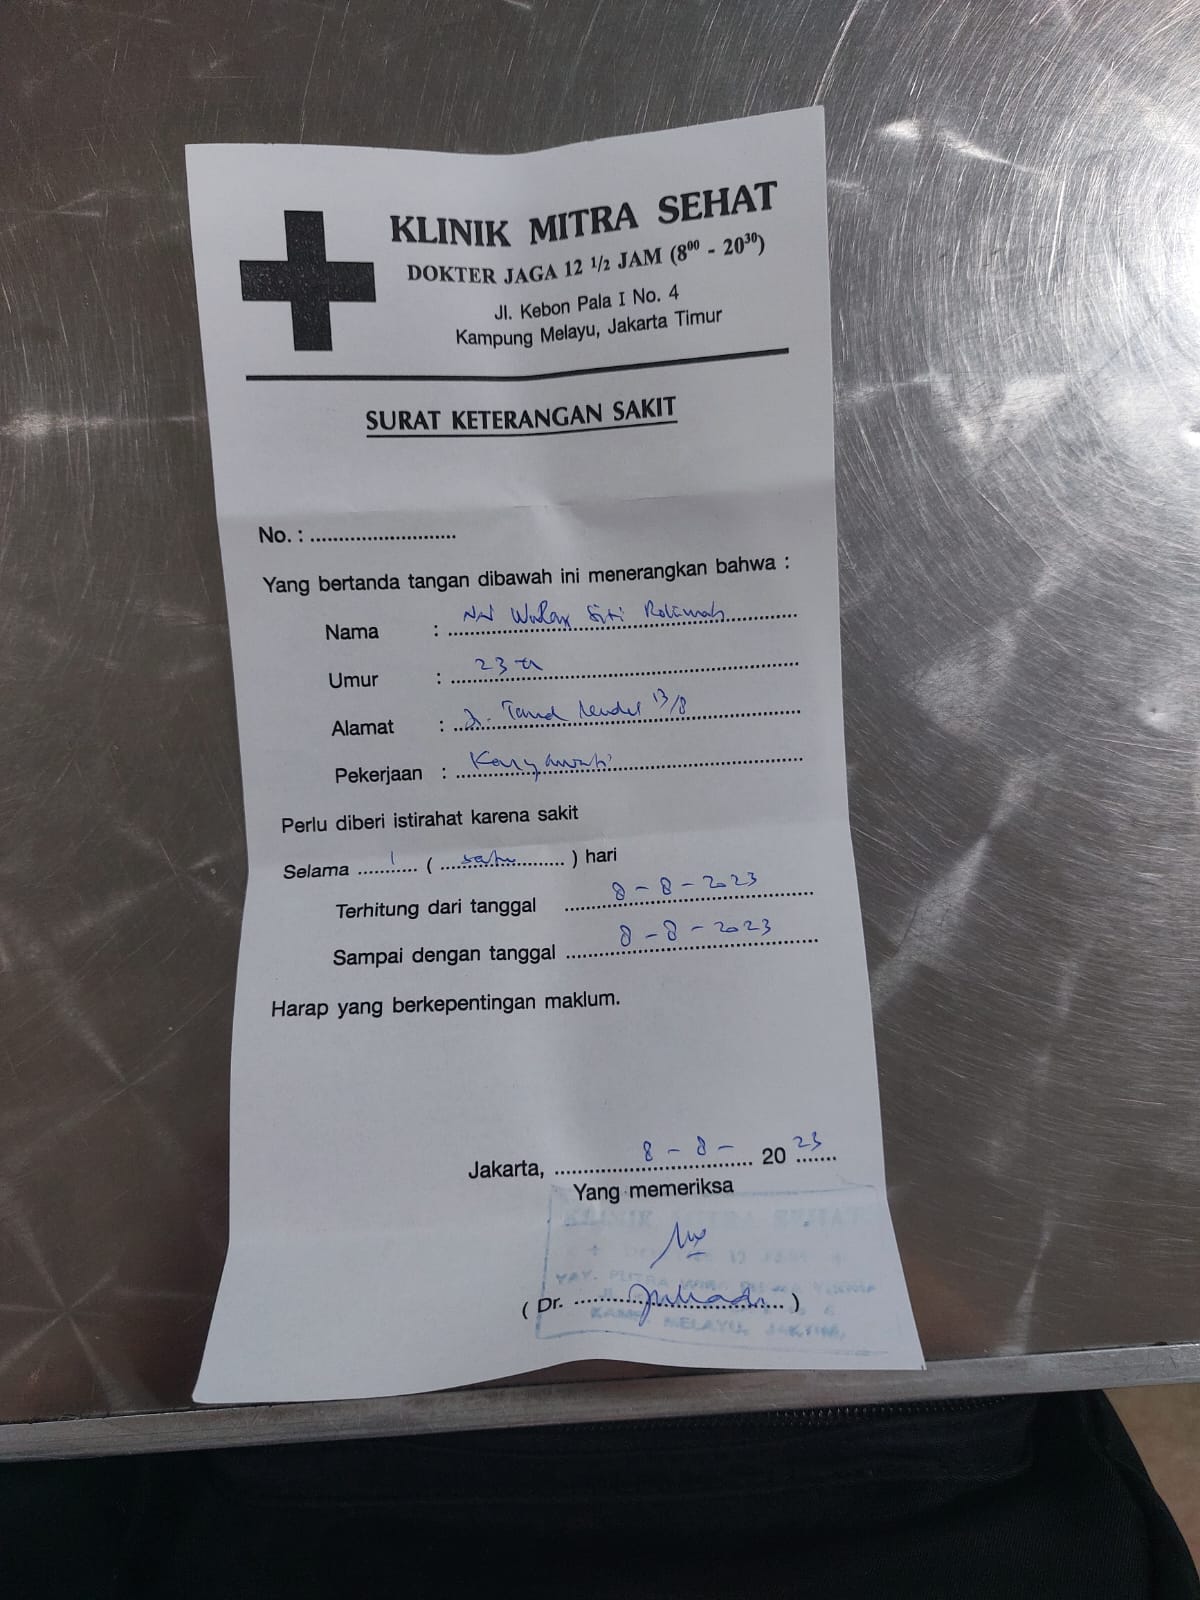 KLINIK MITRA SEHAT
DOKTER JAGA 12 1/2 JAM (8⁰⁰ - 20³⁰)
Jl. Kebon Pala I No. 4
Kampung Melayu, Jakarta Timur
SURAT KETERANGAN SAKIT
No. : ..........................
Yang bertanda tangan dibawah ini menerangkan bahwa :
Nama : Siti
Umur : 23
Alamat : 13/8
Pekerjaan : Karyawati
Perlu diberi istirahat karena sakit
Selama 1 ( satu ) hari
Terhitung dari tanggal 8-8-2023
Sampai dengan tanggal 8-8-2023
Harap yang berkepentingan maklum.
Jakarta, 8 - 8 - 20 23
Yang memeriksa
KLINIK MITRA SEHAT
( Dr. )
MELAYU, JAKTIM.